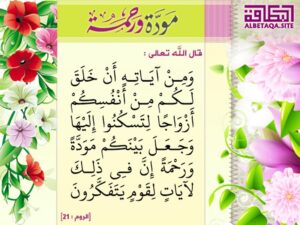 مودة ورحمة
البطاقة
ALBETAQA.SITE
قال الله تعالى :
وَمِنْ آيَاتِهِ أَنْ خَلَقَ
لَكُمْ مِنْ أَنْفُسِكُمْ
أَزْوَاجًا لِتَسْكُنُوا إِلَيْهَا
وَجَعَلَ بَيْنَكُمْ مَوَدَّةً
وَرَحْمَةً إِنَّ فِي ذَلِكَ
لَآيَاتٍ لِقَوْمٍ يَتَفَكَّرُونَ
[الروم : 21]